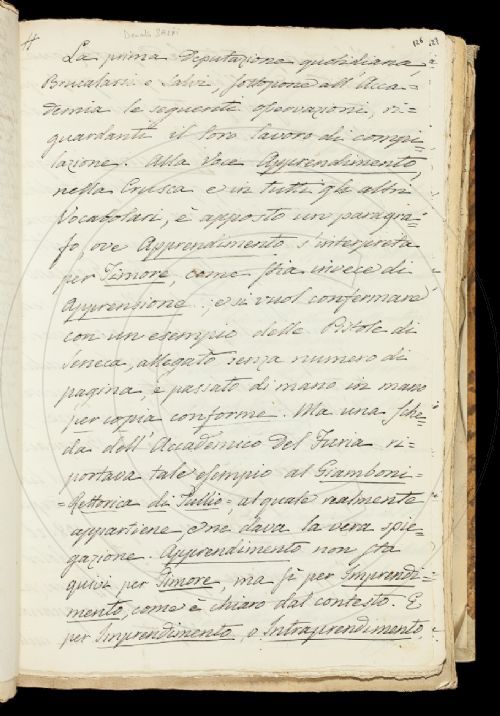 4
Donato Salvi
126 127
La prima Deputazione quotidiana,
Brucalassi e Salvi, sottopone all'Acca=
demia le seguenti osservazioni, ri=
guardanti il loro lavoro di compi=
lazione. Alla Voce Apprendimento,
nella Crusca e in tutti gli altri
Vocabolari, è apposto un paragra=
fo, ove Apprendimento s'interpreta
per Timore, come stia invece di
Apprensione; e si vuol confermare
con un esempio delle Pistole di
Seneca, allegato senza numero di
pagina, e passato di mano in mano
per copia conforme. Ma una Sche=
da dell'Accademico Del Furia ri=
portava tale esempio al Giamboni=
=Rettorica di Tullio=, al quale realmente
appartiene e ne dava la vera spie=
gazione. Apprendimento non sta
quivi per Timore, ma sì per Imprendi=
mento, come è chiaro dal contesto. E
per Imprendimento, o Intraprendimento